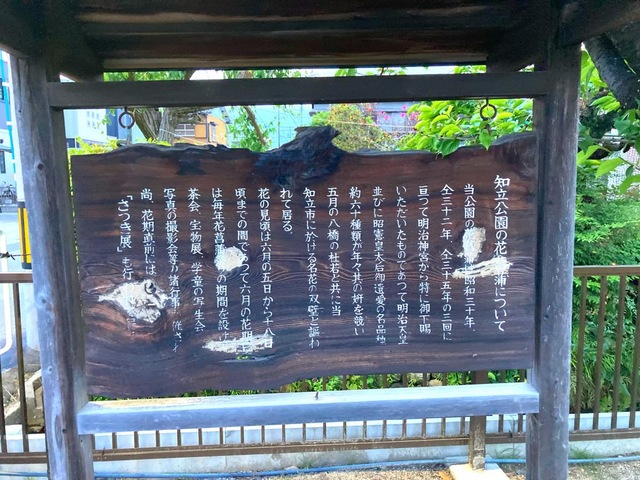 知立公園の花菖蒲について
当公園の 昭和三十年、
仝三十二年、仝三十五年の三回に
亘って明治神宮から特に御下賜
いただいたものであつて明治天皇
並びに昭憲皇太后御遺愛の名品他
約六十種類が年々其の妍を競い
五月の八橋の杜若と共に当
知立市に於ける名花の双璧と謳わ
れて居る。
花の見頃は六月の五日から十八日
頃までの間であつて六月の花期
は毎年花菖 の期間を設け
茶会、宝物展、学童の写生会
写真の撮影会等が諸行事 催され
尚、花期直前には、
「さつき展」も行